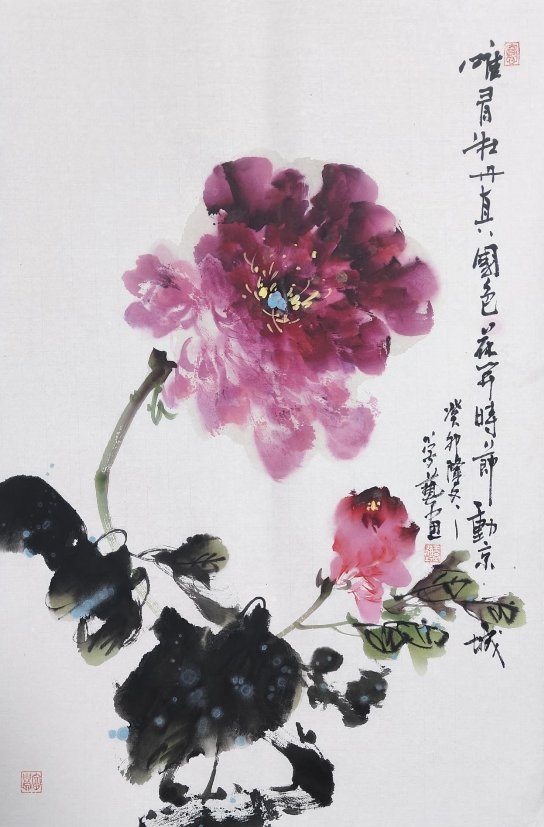 唯有牡丹真國色花開時節動京城
癸卯隆冬
藝畫